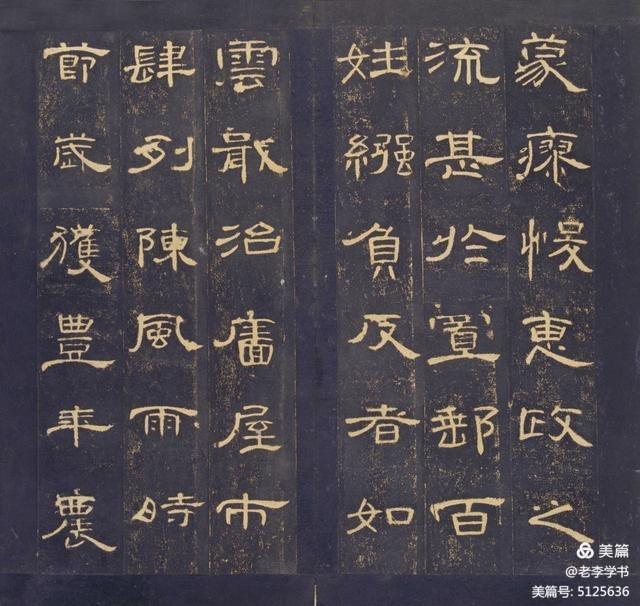 蒙瘳悛惠政之
流甚於置郵百
姓繦負反者如
雲戢治廧屋市
肆列陳風雨時
節歲獲豐年農
美篇
@老李学书
美篇号: 5125636